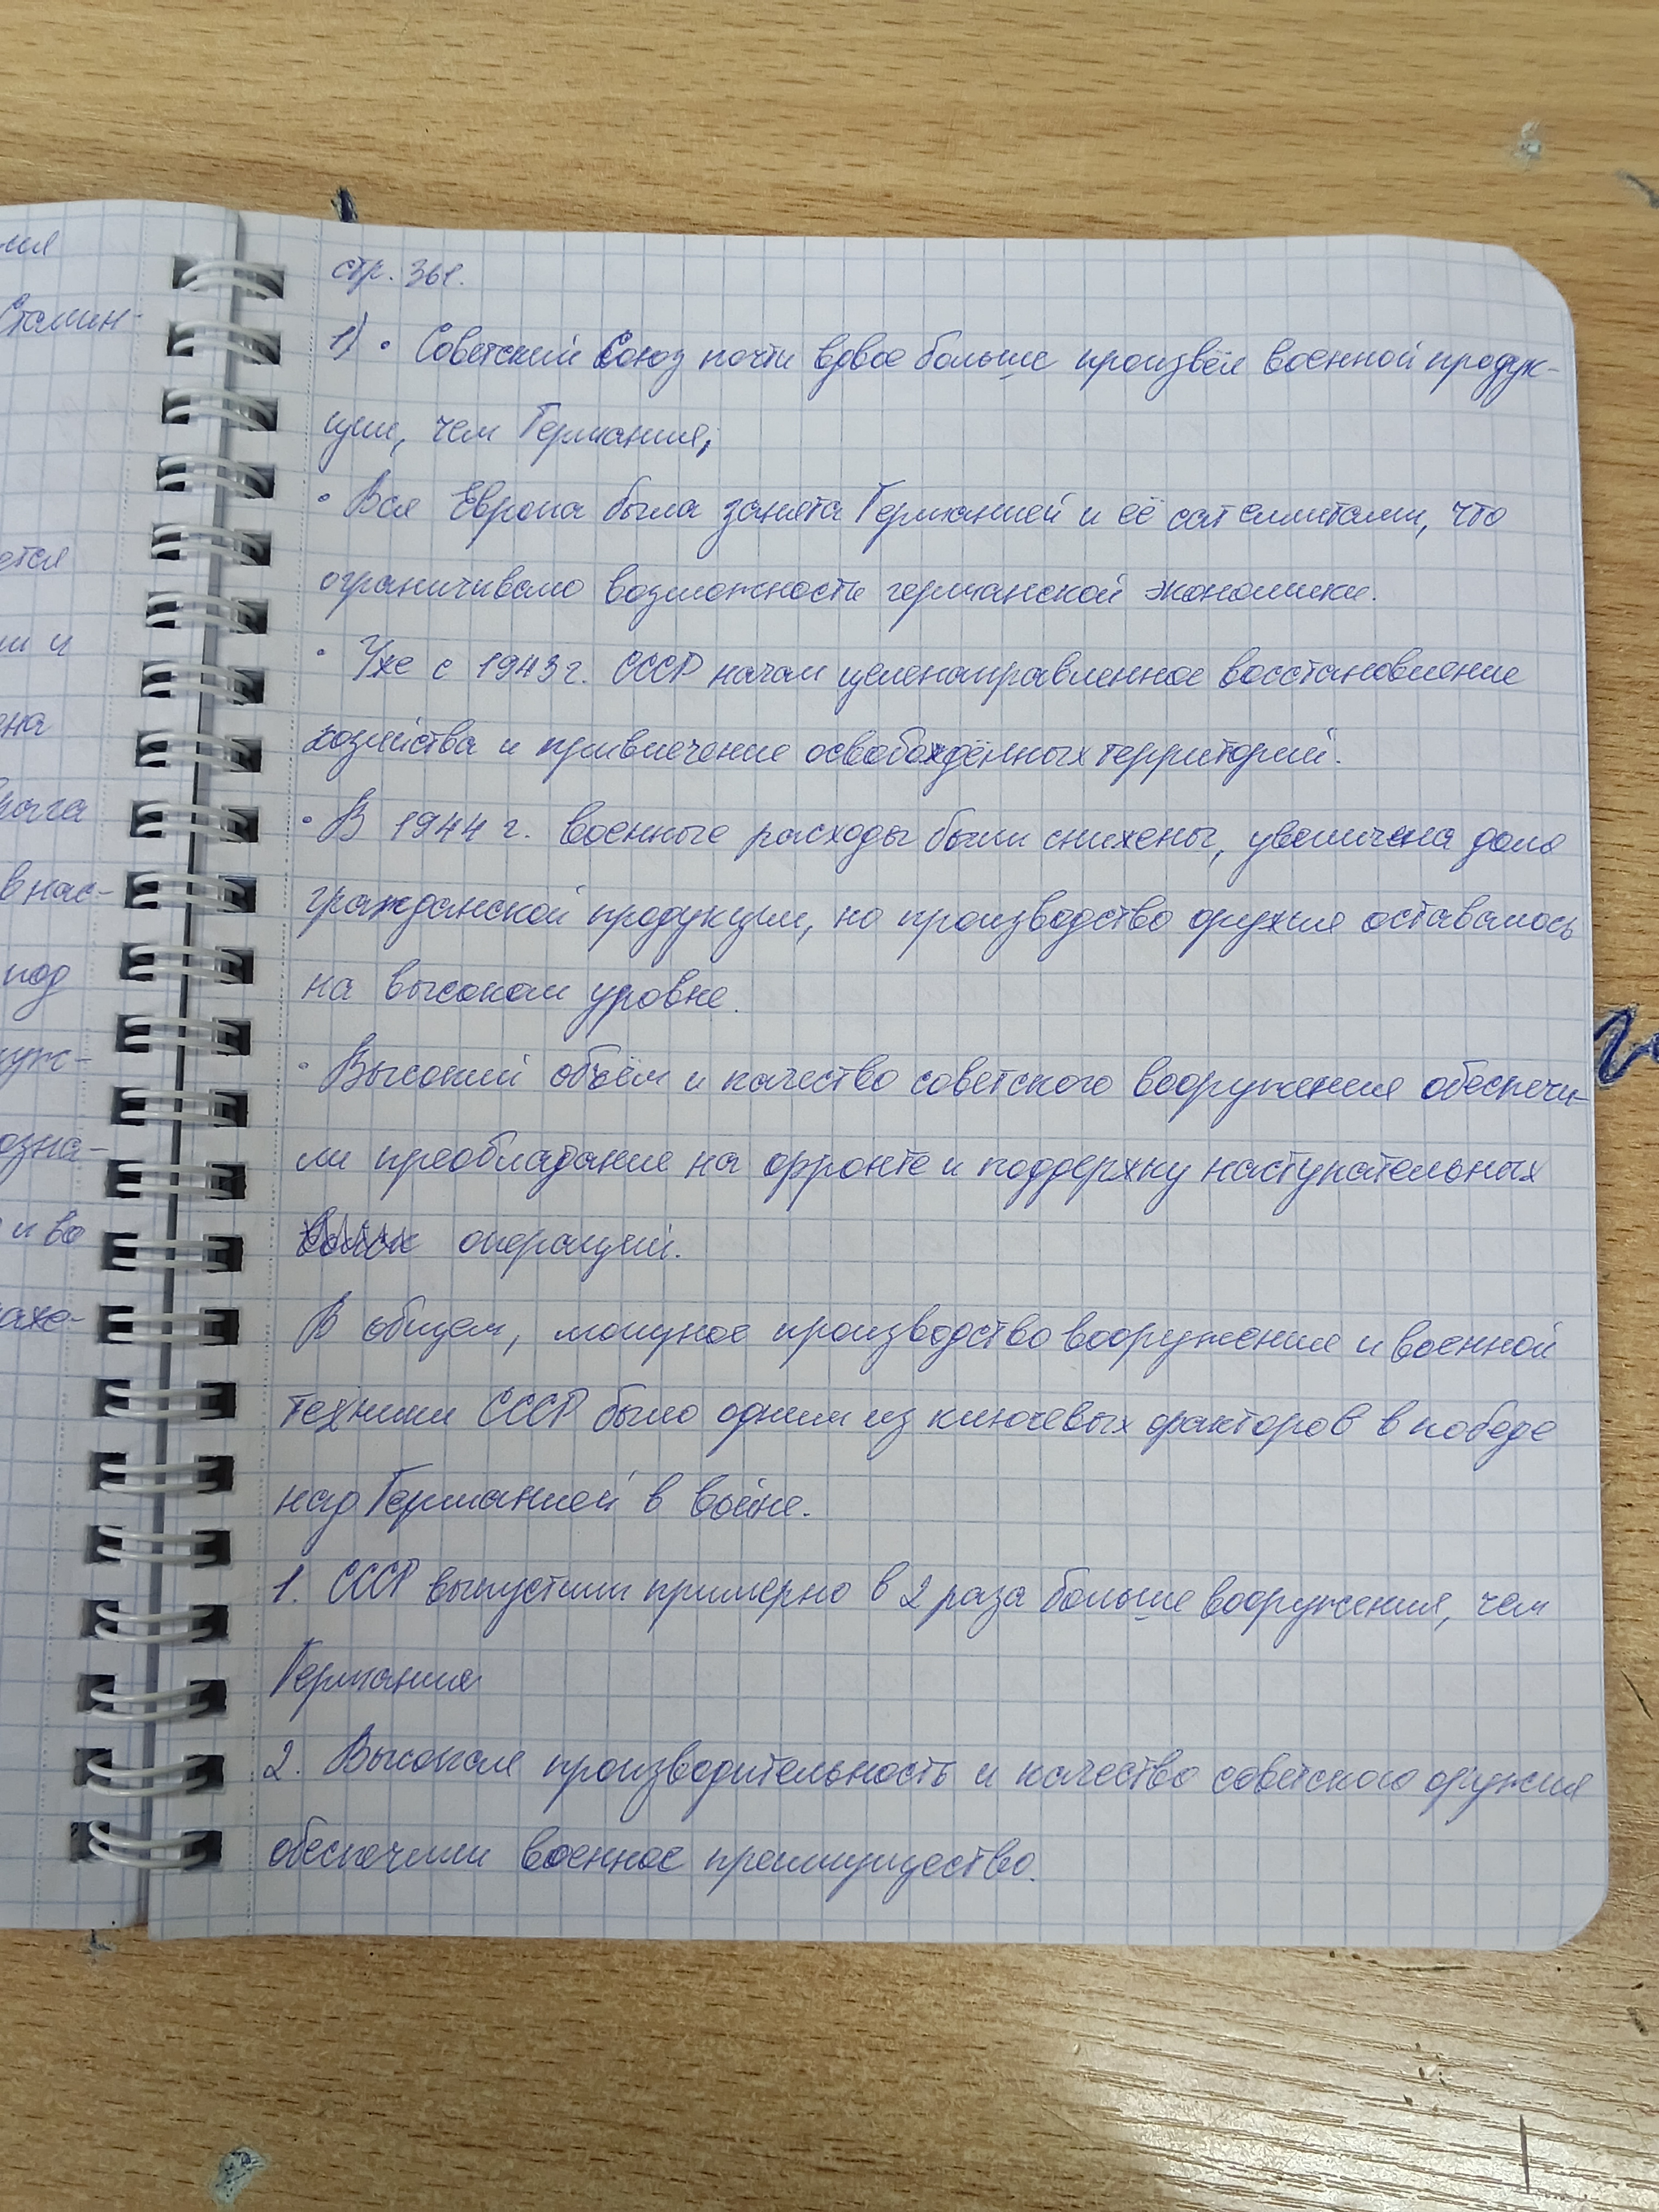 ния
Сталин-
ется
ш и
ена
рага
в нас-
под
руж-
озна-
и во
стр. 361.
1) • Советский Союз почти вдвое больше произвёл военной продук-
ции, чем Германия;
• Вся Европа была занята Германией и её сателлитами, что
ограничивало возможности германской экономики.
• Уже с 1943 г. СССР начал целенаправленное восстановление
хозяйства и привлечение освобождённых территорий.
• В 1944 г. военные расходы были снижены, увеличена доля
гражданской продукции, но производство оружия оставалось
на высоком уровне.
• Высокий объём и качество советского вооружения обеспечи-
ли преобладание на фронте и поддержку наступательных
операций.
В общем, мощное производство вооружения и военной
техники СССР было одним из ключевых факторов в победе
над Германией в войне.
1. СССР выпустили примерно в 2 раза больше вооружения, чем
Германия
2. Высокая производительность и качество советского оружия
обеспечили военное преимущество.